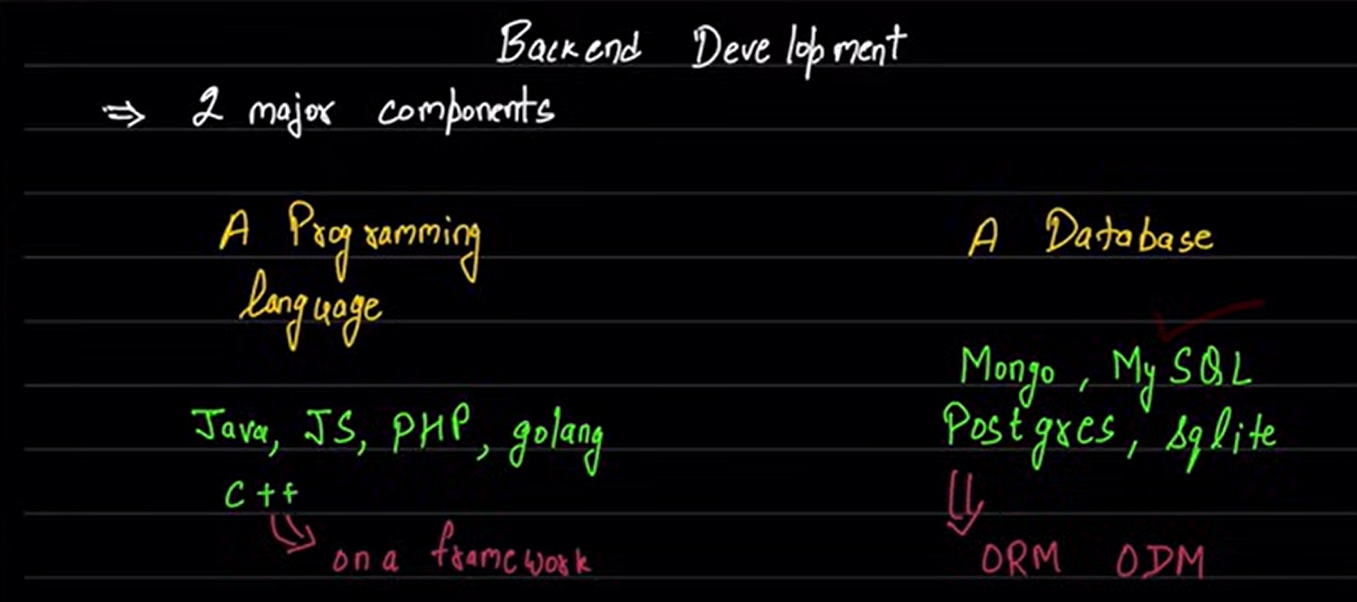 Backend Development
⇒ 2 major components
A Programming
language
A Database
Java, JS, PHP, golang
C++
on a framework
Mongo, MySQL
Postgres, sqlite
ORM ODM